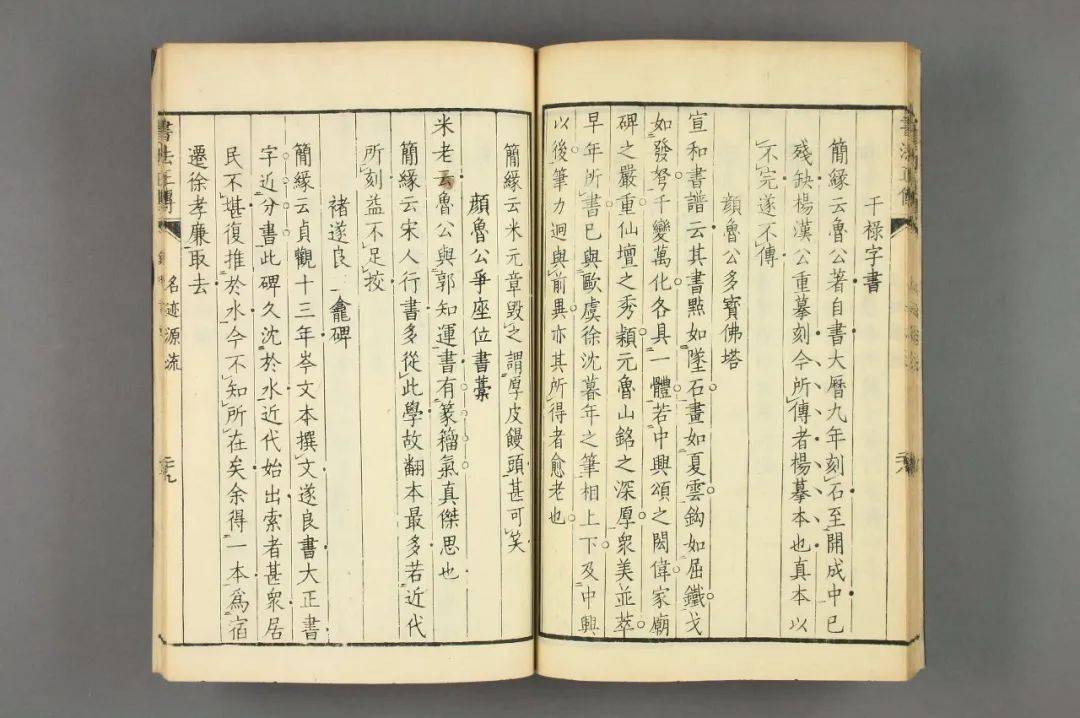 干祿字書
簡緣云魯公著自書大曆九年刻石至開成中已
殘缺楊漢公重摹刻今所傳者楊摹本也真本以
不完遂不傳
顏魯公多寶佛塔
宣和書譜云其書點如墜石畫如夏雲鈎如屈鐵戈
如發弩千變萬化各具一體若中興頌之閎偉家廟
碑之嚴重仙壇之秀穎元魯山銘之深厚衆美並萃
早年所書已與歐虞徐沈暮年之筆相上下及中興
以後筆力迥與前異亦其所得者愈老也
簡緣云米元章毀之謂厚皮饅頭甚可笑
顏魯公爭座位書藁
米老云魯公與郭知運書有篆籀氣真傑思也
簡緣云宋人行書多從此學故翻本最多若近代
所刻益不足挍
褚遂良龕碑
簡緣云貞觀十三年岑文本撰文遂良書大正書
字近分書此碑久沈於水近代始出索者甚衆居
民不堪復推於水今不知所在矣余得一本為宿
遷徐孝廉取去
書法正傳
名迹源流
二十九